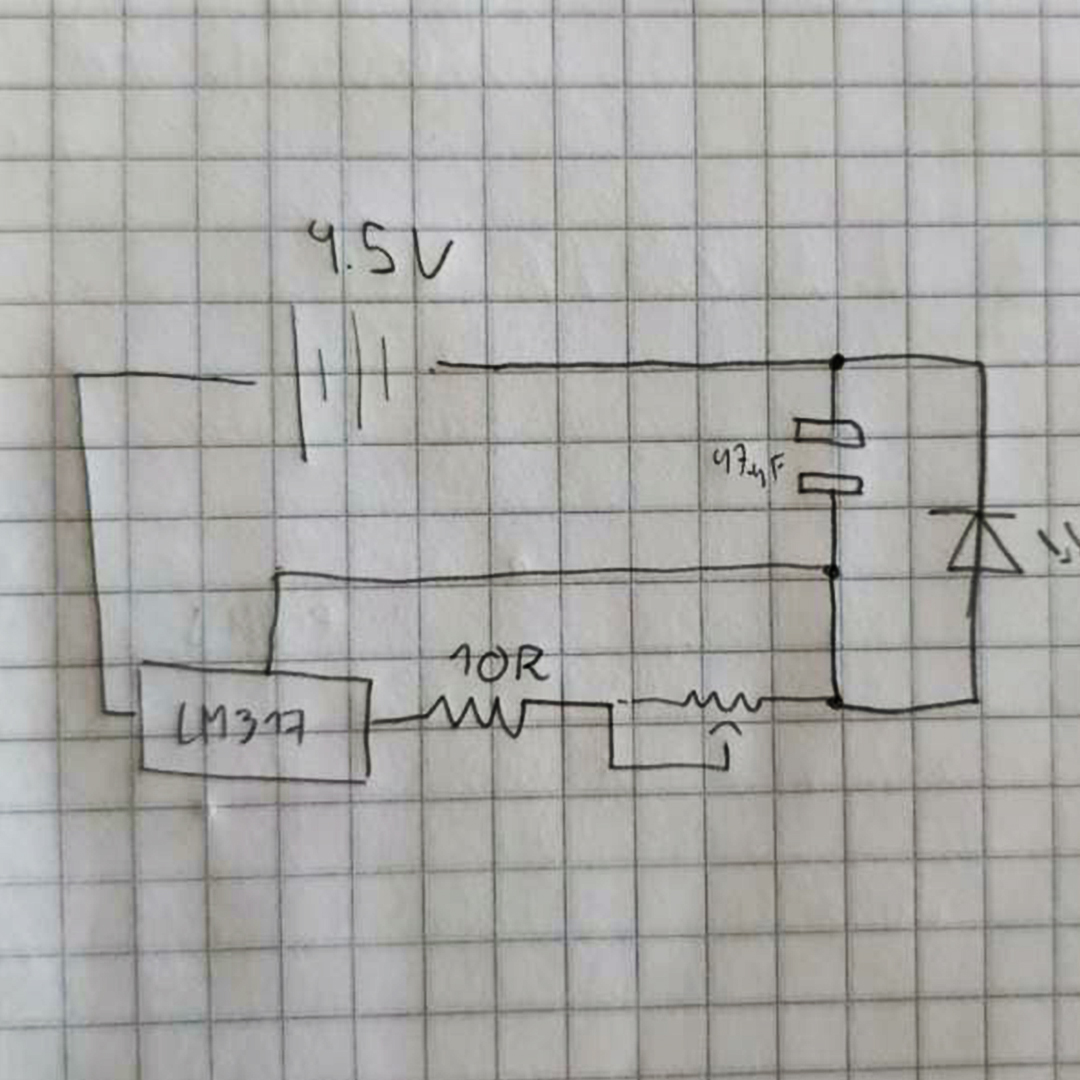 4.5V
47µF
10R
LM317